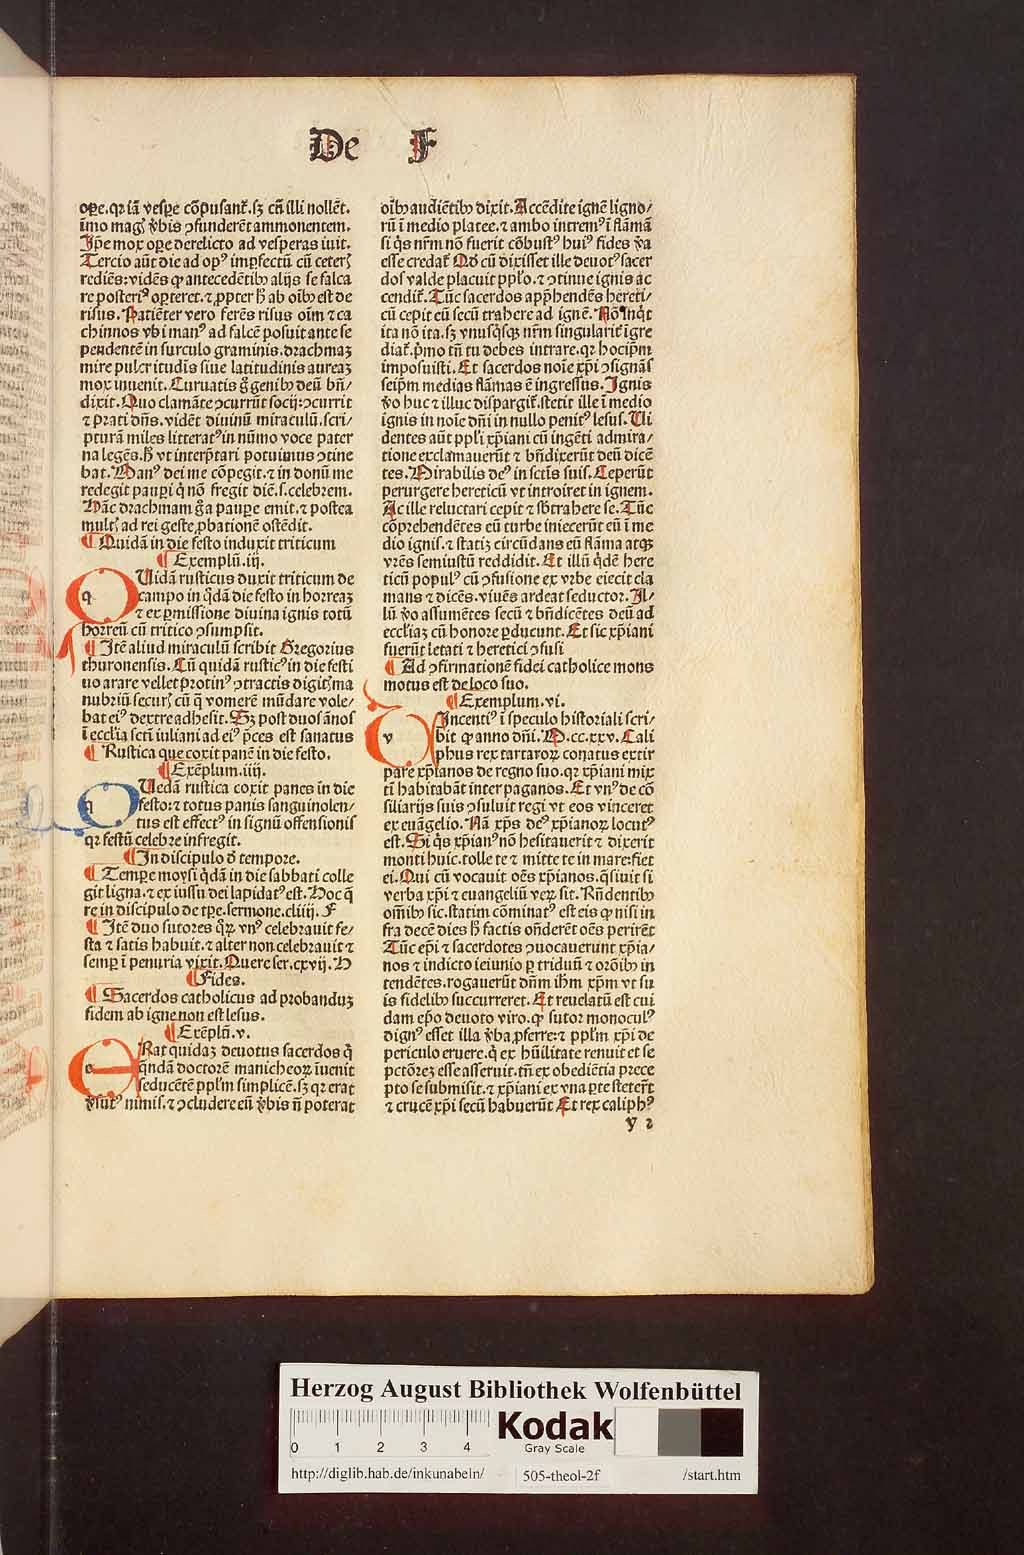 De F
oꝑe. qꝛ iā veſꝑe cōpuſanť. ſꝫ cū illi nollēt.
īmo magꝭ v̄bis ꝯfunderēt ammonentem.
Ip̄e mox oꝑe derelicto ad veſperas iuit.
Tercio aūt die ad opꝰ impfectū cū ceterꝭ
rediēs: vidēs ꝙ antecedētibꝰ alijs ſe falca
re poſteriꝰ oꝑteret. ⁊ ꝓpter hͦ ab oībꝰ eſt de
riſus. Patiēter vero ferēs riſus oīm ⁊ ca
chinnos vbi manꝰ ad falcē poſuit ante ſe
pendentē in ſurculo graminis. drachmaꝫ
mire pulcritudis ſiue latitudinis aureaꝫ
mox inuenit. Curuatis g̊ genibꝰ deū bn̄/
dixit. Quo clamāte ꝯcurrūt ſocij: ꝯcurrit
⁊ prati dn̄s. vidēt diuinū miraculū. ſcri/
pturā miles litteratꝰ in nūmo voce pater
na legēs. hͦ vt interp̄tari potuimus ꝯtine
bat. Manꝰ dei me cōpegit. ⁊ in donū me
redegit pauꝑi q̇ nō fregit diē. ſ. celebrem.
Hāc drachmam g̊a pauꝑe emit. ⁊ poſtea
multꝭ ad rei geſte ꝓbationē oſtēdit.
¶ Quidā in die feſto induxit triticum
¶ Exemplū. iij.
QUidā ruſticus duxit triticum de
campo in q̄dā die feſto in horreaꝫ
⁊ ex ꝑmiſſione diuina ignis totū
horreū cū tritico ꝯſumpſit.
¶ Itē aliud miraculū ſcribit Gregorius
thuronenſis. Cū quidā ruſticꝰ in die feſti
uo arare vellet protinꝰ ꝯtractis digitꝭ ma
nubriū ſecurꝭ cū q̊ vomerē mūdare vole/
bat eiꝰ dextre adheſit. Sꝫ poſt duos ānos
ī ecclīa ſctī iuliani ad eiꝰ p̄ces eſt ſanatus
¶ Ruſtica que coxit panē in die feſto.
¶ Exēplum. iiij.
QUedā ruſtica coxit panes in die
feſto: ⁊ totus panis ſanguinolen/
tus eſt effectꝰ in ſignū offenſionis
qꝛ feſtū celebre infregit.
¶ In diſcipulo d̄ tempore.
¶ Tempe moyſi q̇dā in die ſabbati colle
git ligna. ⁊ ex iuſſu dei lapidatꝰ eſt. Hoc q̄
re in diſcipulo de tꝑe. ſermone. cliiij. F
¶ Itē duo ſutores qꝝ vnꝰ celebrauit fe/
ſta ⁊ ſatis habuit. ⁊ alter non celebrauit ⁊
ſemꝑ ī penuria vixit. Quere ſer. cxvij. H
¶ Fides.
¶ Sacerdos catholicus ad probanduꝫ
fidem ab igne non eſt leſus.
¶ Exēplū. v.
ERat quidaꝫ deuotus ſacerdos q̇
q̄ndā doctorē manicheoꝝ īuenit
ſeducētē ppl̄m ſimplicē. ſꝫ qꝛ erat
v̄ſutꝰ nimis. ⁊ ꝯcludere eū v̄bis n̄ poterat
oībꝰ audiētibꝰ dixit. Accēdite ignē ligno/
rū ī medio platee. ⁊ ambo intremꝰ ī flāmā
ſi q̇s nr̄m nō fuerit cōbuſtꝰ huiꝰ fides v̄a
eſſe credať. Qd̄ cū dixiſſet ille deuotꝰ ſacer
dos valde placuit pplo. ⁊ ꝯtinue ignis ac
cendiť. Tūc ſacerdos app̄hendēs hereti/
cū cepit eū ſecū trahere ad ignē. Nō inq̇t
ita nō ita. ſꝫ vnuſq̇ſqꝫ nr̄m ſingulariť īgre
diať. p̄mo tn̄ tu debes intrare. qꝛ hoc ip̄m
impoſuiſti. Et ſacerdos noīe xp̄i ꝯſignās
ſeip̄m medias flāmas ē ingreſſus. Ignis
v̊o huc ⁊ illuc diſpargiť. ſtetit ille ī medio
ignis in noīe dn̄i in nullo penitꝰ leſus. Ui
dentes aūt ppl̄i xp̄iani cū ingēti admira/
tione exclamauerūt ⁊ bn̄dixerūt deū dicē
tes. Mirabilis deꝰ in ſctīs ſuis. Ceperūt
perurgere hereticū vt introiret in ignem.
Ac ille reluctari cepit ⁊ ſb̄trahere ſe. Tūc
cōprehendētes eū turbe iniecerūt eū ī me
dio ignis. ⁊ ſtatiꝫ circūdans eū flāma atqꝫ
vrēs ſemiuſtū reddidit. Et illū q̇dē here
ticū populꝰ cū ꝯfuſione ex vrbe eiecit cla
mans ⁊ dicēs. viuēs ardeat ſeductor. Il/
lū v̊o aſſumētes ſecū ⁊ bn̄dicētes deū ad
eccl̄iaꝫ cū honore ꝑducunt. Et ſic xp̄iani
fuerūt letati ⁊ heretici ꝯfuſi
¶ Ad ꝯfirmationē fidei catholice mons
motus eſt de loco ſuo.
¶ Exemplum. vi.
VIncentiꝰ ī ſpeculo hiſtoriali ſcri/
bit ꝙ anno dn̄i. M. cc. xxv. Cali
phus rex tartaroꝝ conatus extir
pare xp̄ianos de regno ſuo. qꝛ xp̄iani mix
ti habitabāt inter paganos. Et vnꝰ de cō
ſiliarijs ſuis ꝯſuluit regi vt eos vinceret
ex euāgelio. Nā xp̄s deꝰ xp̄ianoꝝ locutꝰ
eſt. Si q̇s xp̄ianꝰ nō heſitauerit ⁊ dixerit
monti huic. tolle te ⁊ mitte te in mare: fiet
ei. Qui cū vocauit oēs xp̄ianos. q̄ſiuit ſi
verba xp̄i ⁊ euangeliū veꝝ ſit. Rn̄dentibꝰ
om̄ibꝰ ſic. ſtatim cōminatꝰ eſt eis ꝙ niſi in
fra decē dies hͦ factis on̄derēt oēs perirēt
Tūc ep̄i ⁊ ſacerdotes ꝯuocauerunt xp̄ia/
nos ⁊ indicto ieiunio ꝑ triduū ⁊ orōibꝰ in
tendētes. rogauerūt dn̄m ih̄m xp̄m vt ſu
is fidelibꝰ ſuccurreret. Et reuelatū eſt cui
dam ep̄o deuoto viro. ꝙ ſutor monoculꝰ
dignꝰ eſſet illa v̄ba ꝓferre: ⁊ ppl̄m xp̄i de
periculo eruere. q̇ ex hūilitate renuit et ſe
pctōreꝫ eſſe aſſeruit. tn̄ ex obediētia prece
pto ſe ſubmiſit. ⁊ xp̄iani ex vna ꝑte ſteterūt
⁊ crucē xp̄i ſecū habuerūt Et rex caliphꝰ
y 2
Herzog August Bibliothek Wolfenbüttel
0 1 2 3 4
Kodak
Gray Scale
http://diglib.hab.de/inkunabeln/ 505-theol-2f /start.htm